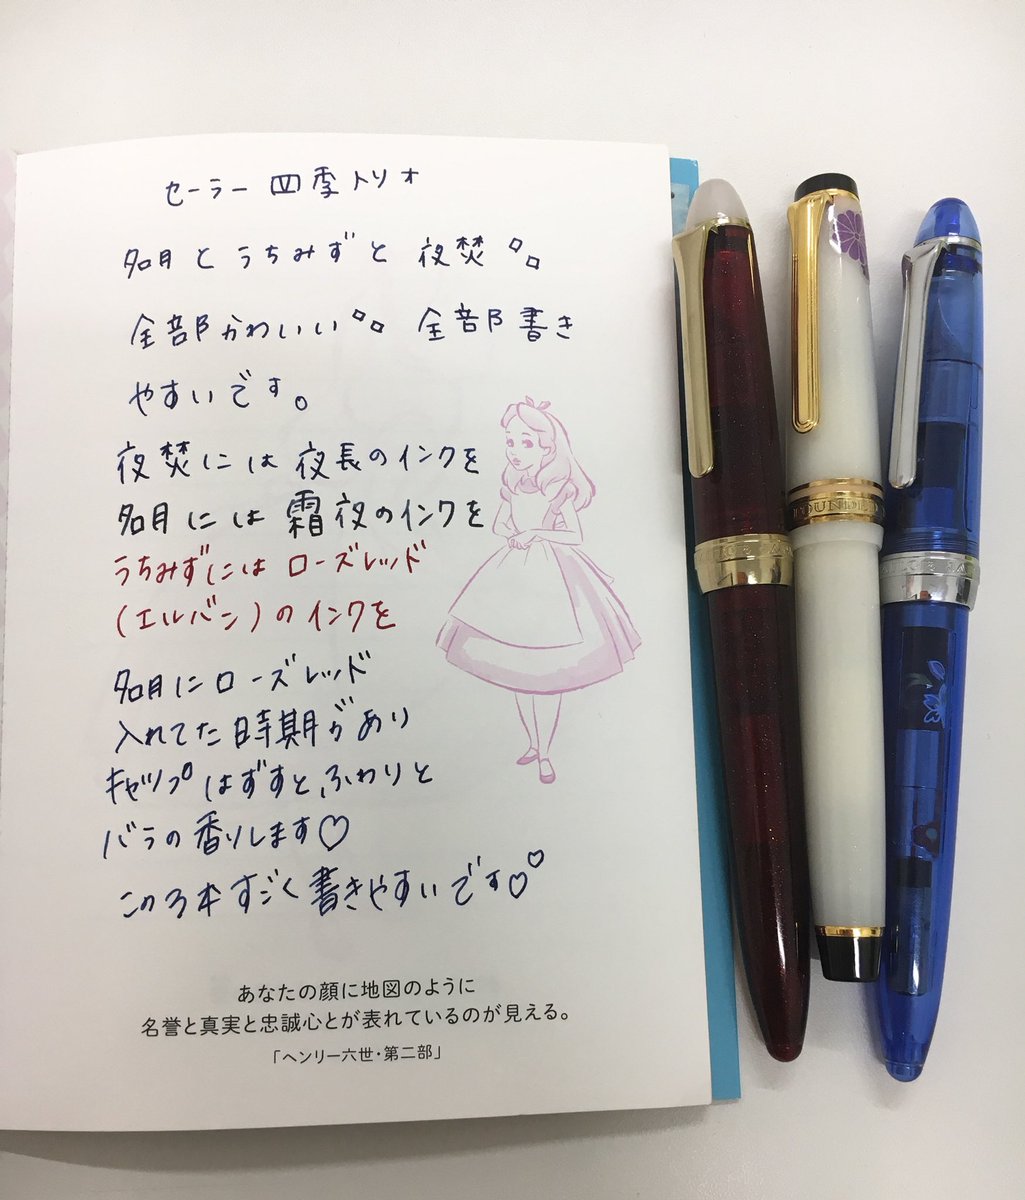 セーラー 四季トリオ
名月とうちみずと夜焚
全部かわいい 全部書き
やすいです。
夜焚には夜長のインクを
名月には霜夜のインクを
うちみずにはローズレッド
(エルバン)のインクを
名月にローズレッド
入れてた時期があり
キャップはずすとふわりと
バラの香りします♡
この3本すごく書きやすいです♡♡
あなたの顔に地図のように
名誉と真実と忠誠心とが表れているのが見える。
「ヘンリー六世・第二部」
FOUNDED